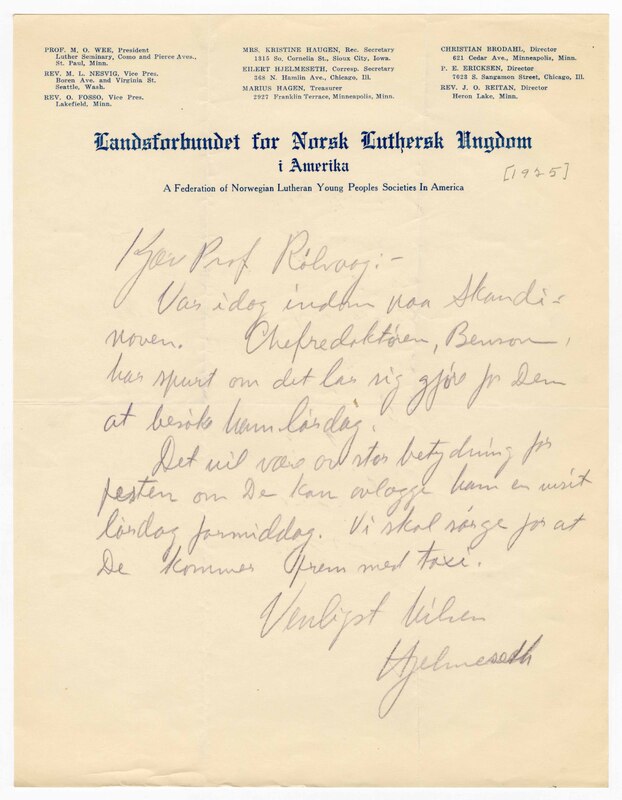 PROF. M. O. WEE, President
Luther Seminary, Como and Pierce Aves.,
St. Paul, Minn.
REV. M. L. NESVIG, Vice Pres.
Boren Ave. and Virginia St.
Seattle, Wash.
REV. O. FOSSO, Vice Pres.
Lakefield, Minn.
MRS. KRISTINE HAUGEN, Rec. Secretary
1315 So. Cornelia St., Sioux City, Iowa.
EILERT HJELMESETH, Corresp. Secretary
348 N. Hamlin Ave., Chicago, Ill.
MARIUS HAGEN, Treasurer
2927 Franklin Terrace, Minneapolis, Minn.
CHRISTIAN BRODAHL, Director
621 Cedar Ave., Minneapolis, Minn.
P. E. ERICKSEN, Director
7023 S. Sangamon Street, Chicago, Ill.
REV. J. O. REITAN, Director
Heron Lake, Minn.
Landsforbundet for Norsk Luthersk Ungdom
i Amerika
A Federation of Norwegian Lutheran Young Peoples Societies In America
[1925]
Kjær Prof Rölvaag:-
Var idag indom paa Skandi=
naven. Chefredaktören, Benson,
har spurt om det lar sig gjöre for Dem
at besöke ham lördag.
Det vil være av stor betydning for
festen om De kan avlægge ham en visit
lördag formiddag. Vi skal sörge for at
De kommer frem med taxi.
Venligst hilsen
Hjelmeseth